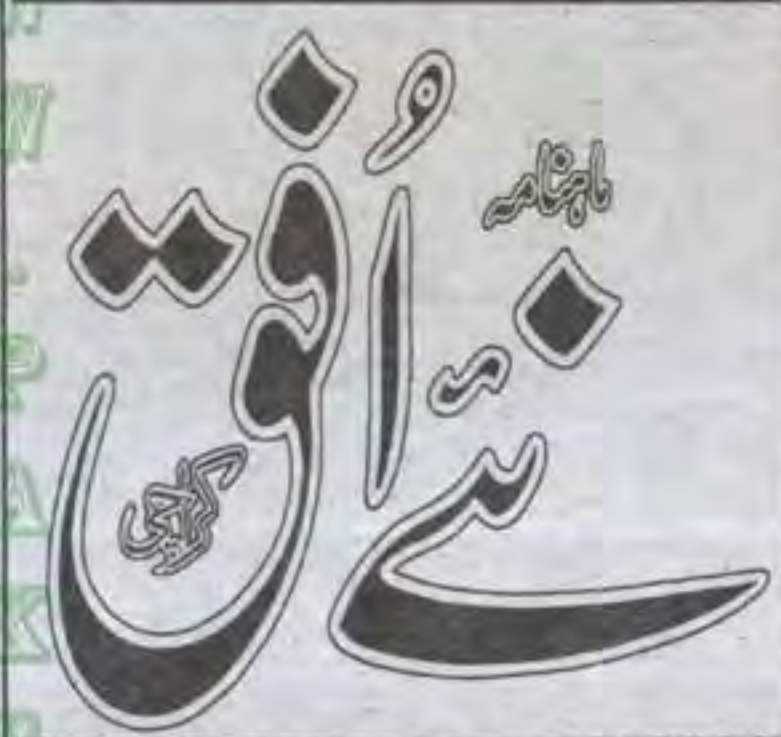 ماہنامہ
نئے اُفق
کراچی
W
P
A
K